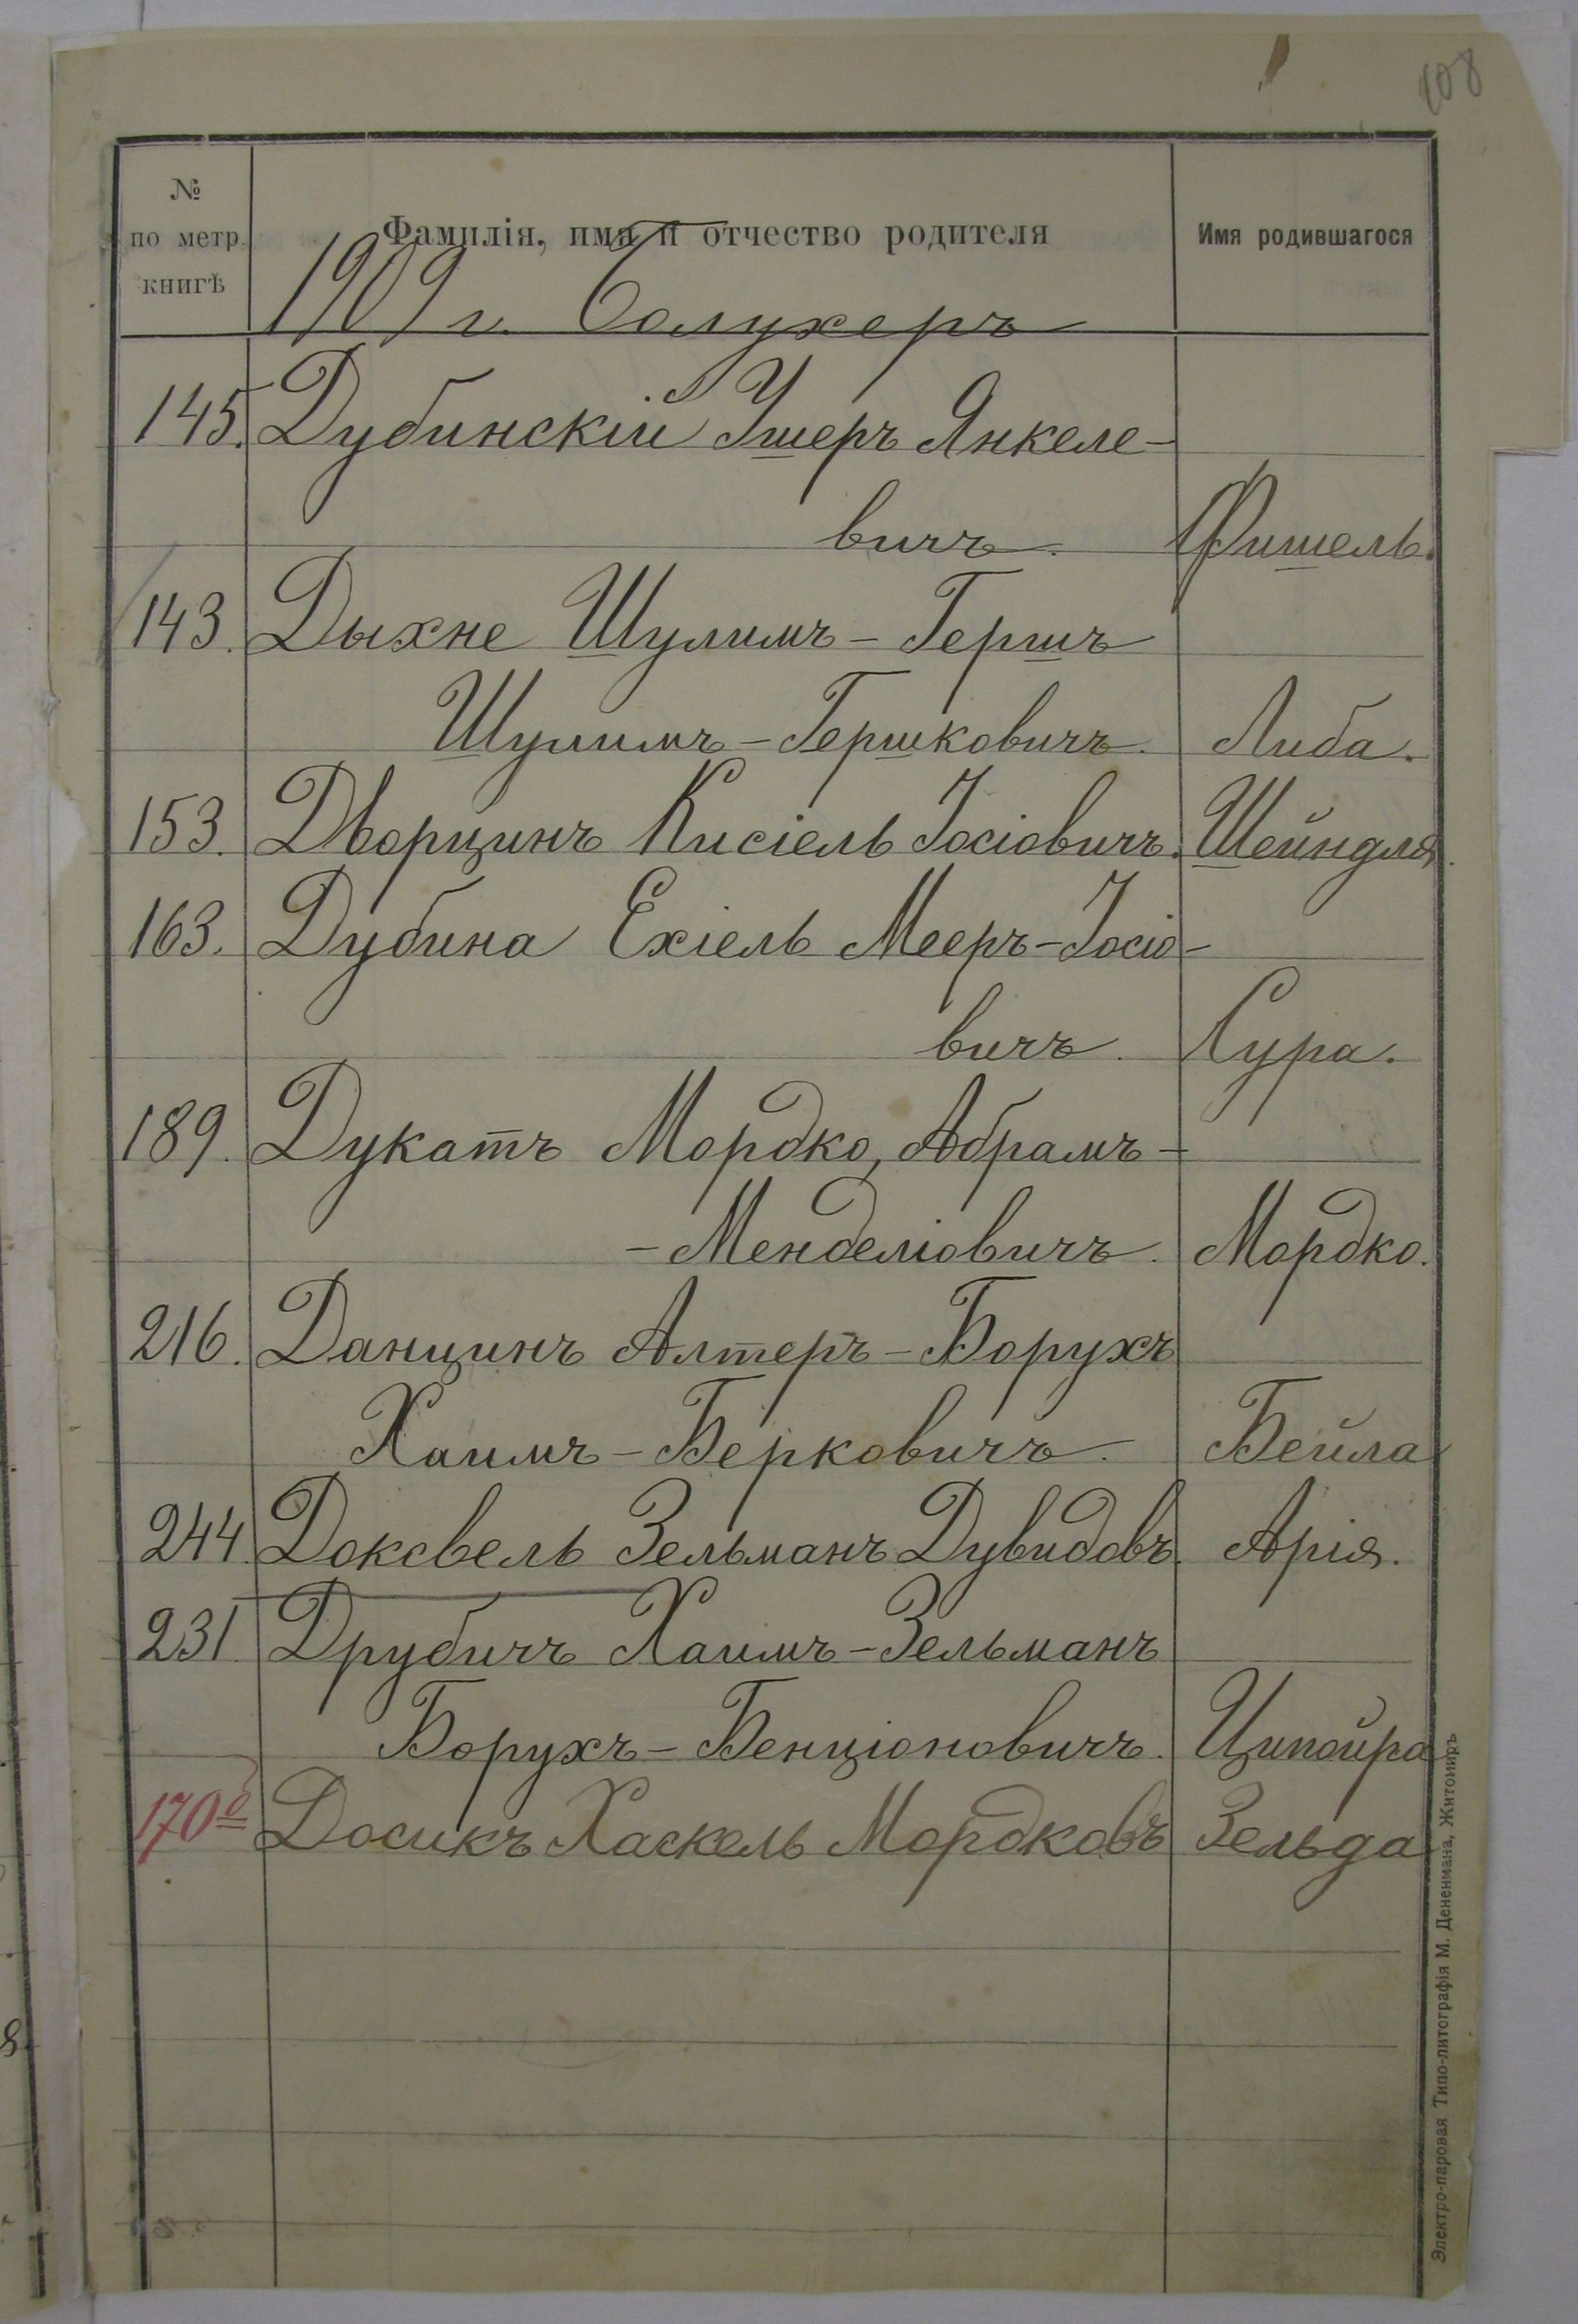 108
№ по метр. книгѣ
Фамилія, имя и отчество родителя
Имя родившагося
1909 г.
145. Дубинскій Ушеръ Янкеле-
вичъ. Фишель.
143. Дыхне Шулимъ-Гершъ
Шулимъ-Гершковичъ. Либа.
153. Дворцинъ Кисіель Іосіовичъ. Шейндля.
163. Дубина Ехіель Мееръ-Іосіо-
вичъ. Сура.
189. Дукатъ Мордко, Абрамъ-
-Менделіовичъ. Мордко.
216. Данцинъ Алтеръ-Борухъ
Хаимъ-Берковичъ. Бейла
244. Доксвель Зельманъ Дувидовъ. Арія.
231. Друбичъ Хаимъ-Зельманъ
Борухъ-Бенціоновичъ. Ципойра
170 Досикъ Хаскель Мордковъ Зельда
Электро-паровая Типо-литографія М. Дененмана, Житомиръ